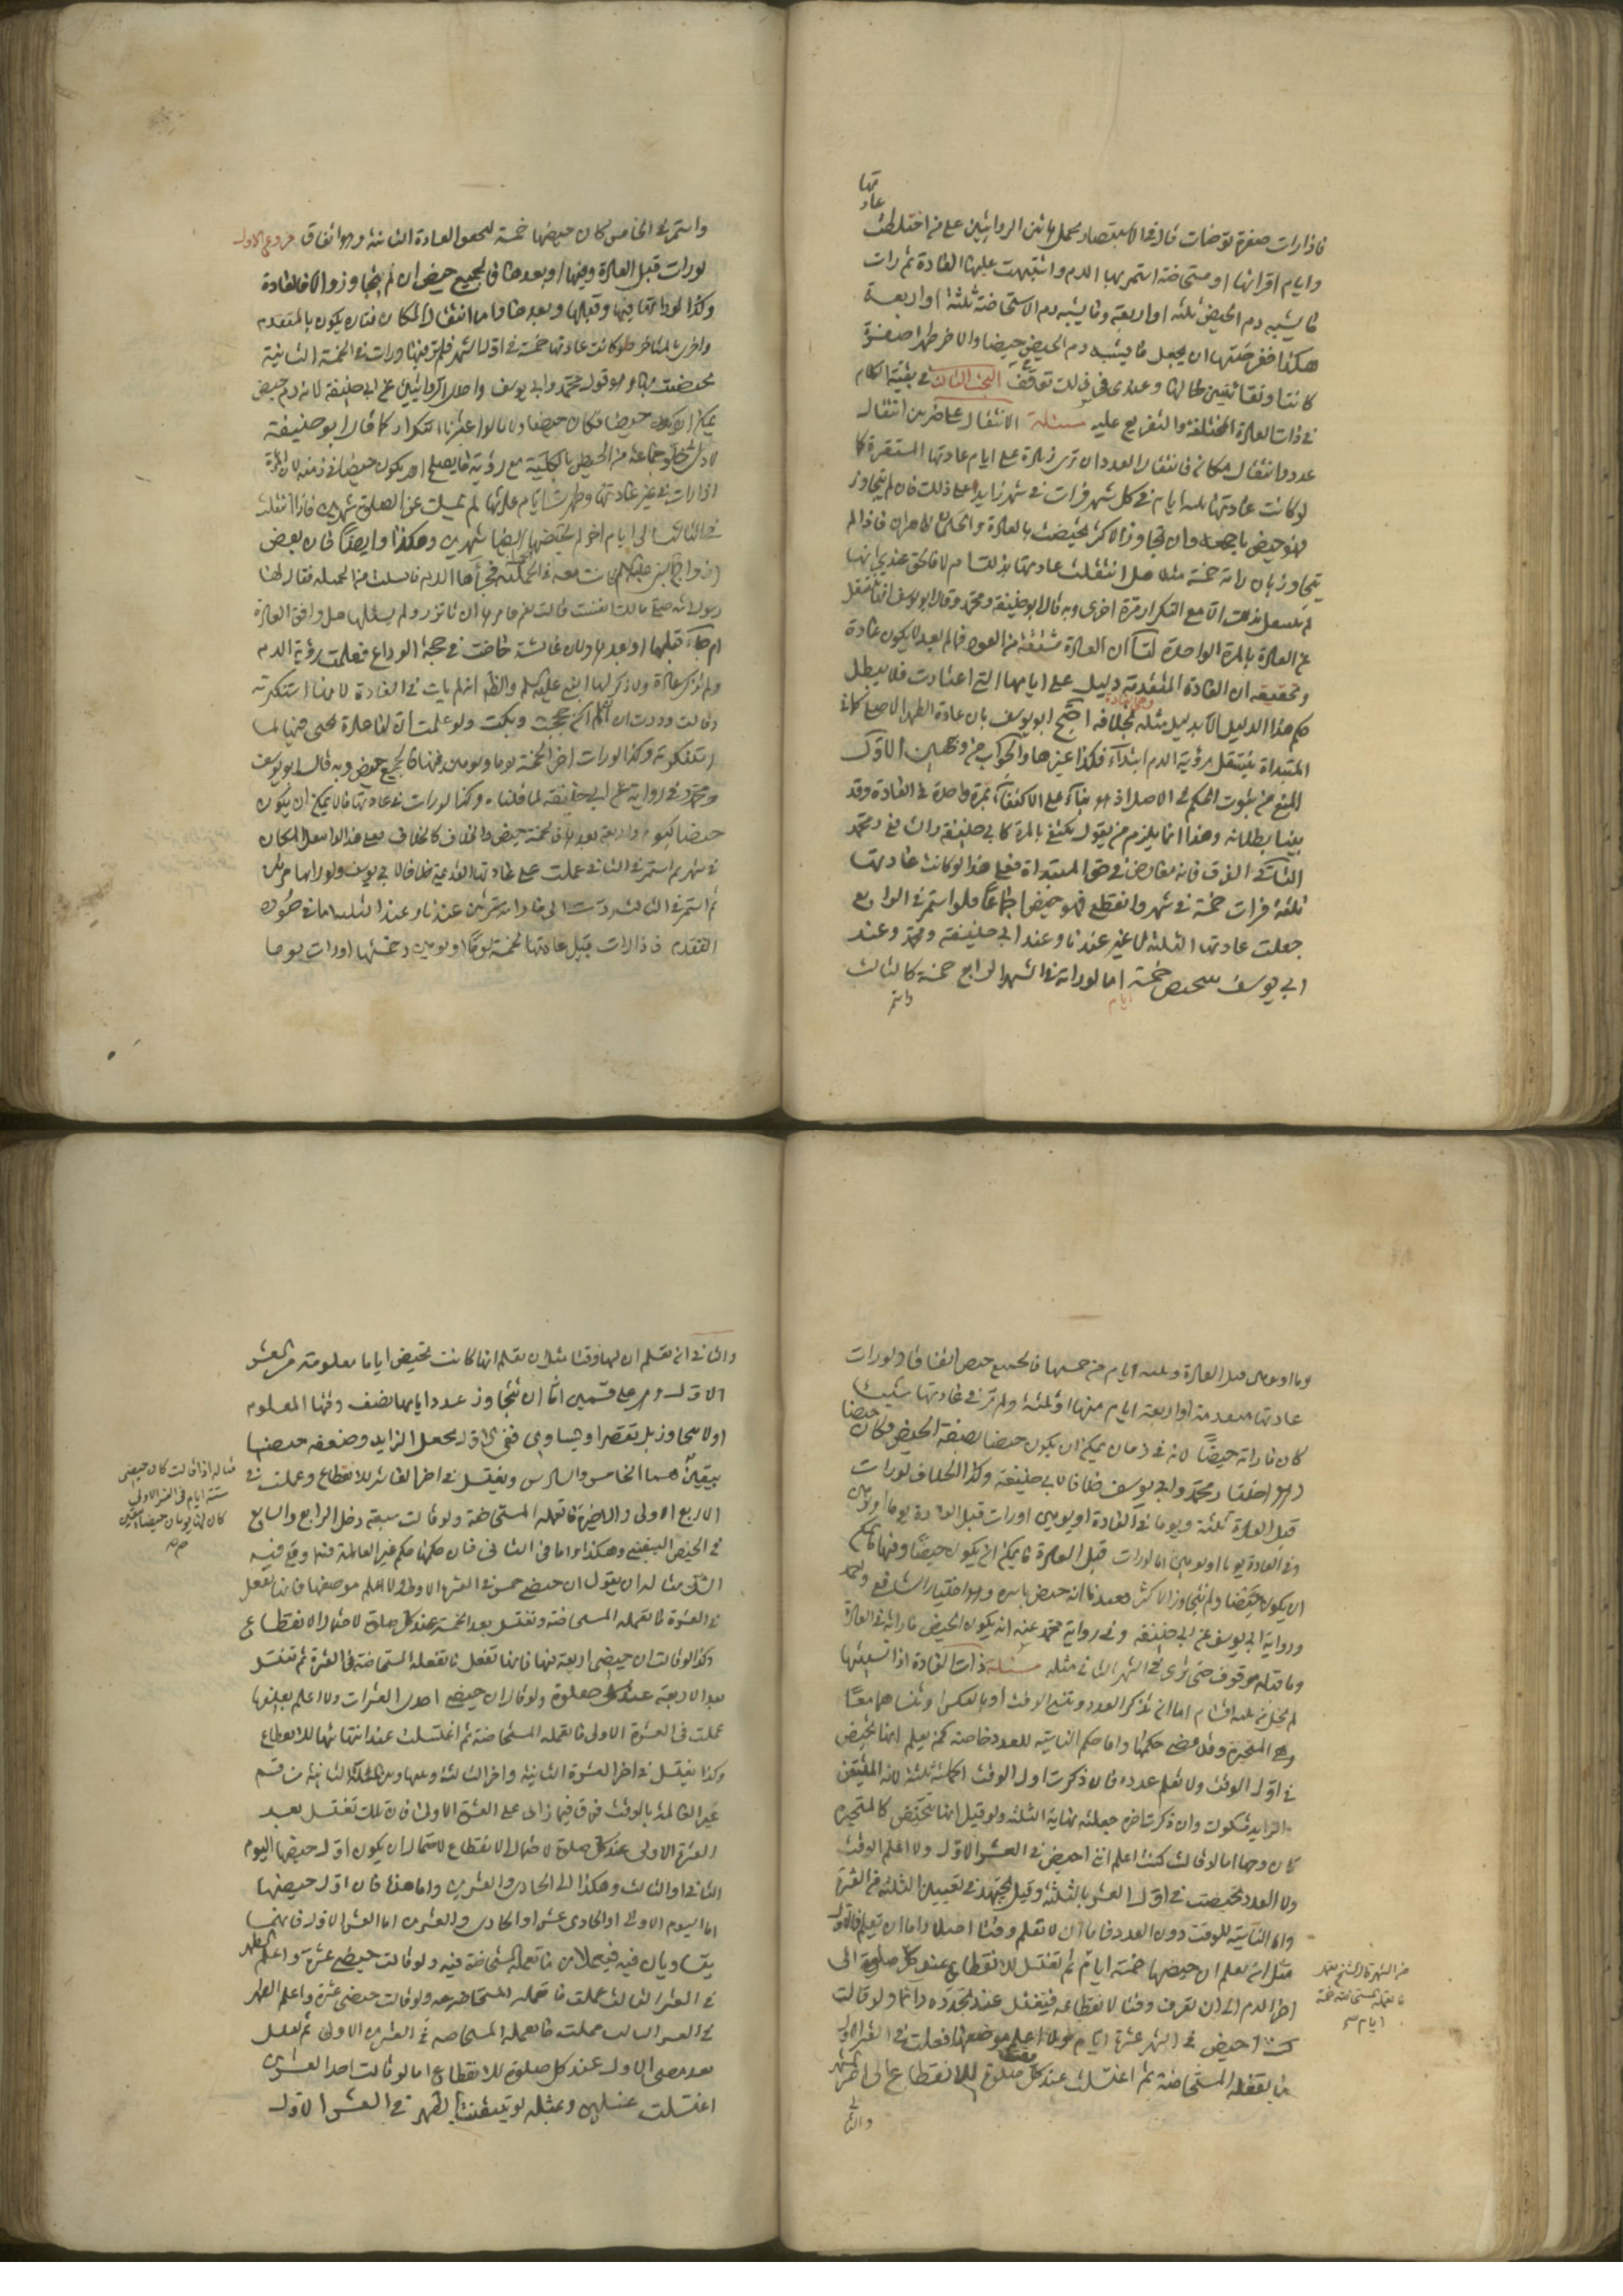 فاذا رات صفرة توضات قال في الاستبصار يحمل هاتين الروايتين على من اختلطت
عادتها
وايام اقرائها او مستحاضة استمر بها الدم واشتبهت عليها العادة ثم رات
ما يشبه دم الحيض ثلثة او اربعة وما يشبه دم الاستحاضة ثلثة او اربعة
هكذا ففرضتها ان يجعل ما يشبه دم الحيض حيضا والاخر طهرا صفرة
كانت او نقا لتعين حالها وعندى في ذلك توقف البحث الثالث في بقية احكام
ذات العادة المختلفة والتفريع عليه مسئلة الانتقال على ضربين انتقال
عدد وانتقال مكان فانتقال العدد ان ترى زيادة على ايام عادتها المستقرة كما
لو كانت عادتها ثلثة ايام في كل شهر فرات في شهر زايدا على ذلك فان لم يتجاوز
فهو حيض باجمعه وان تجاوز الاكثر تحيضت بالعادة والحكمان ظاهران فاذا لم
يتجاوز بان راته خمسة مثلا هل انتقلت عادتها بذلك ام لا فالحق عندى انها
لم تنتقل الا مع التكرار مرة اخرى وبه قال ابو حنيفة ومحمد وقال ابو يوسف انها تنتقل
عن العادة بالمرة الواحدة لنا ان العادة مشتقة من العود فما لم يعد لا يكون عادة
وتحقيقه ان العادة المتقدمة دليل على ايامها التي اعتادت فلا يبطل
حكم هذا الدليل الا بدليل مثله بخلافه احتج ابو يوسف بان عادة الطهر الاصلي في
المبتداة ينتقل برؤية الدم ابتداء فكذا غيرها والجواب من وجهين الاول
المنع من ثبوت الحكم في الاصل اذ هو بناء على الاكتفاء بمرة واحدة في العادة وقد
بينا بطلانه وهذا انما يلزم من يقول يكتفى بالمرة كابي حنيفة والشافعي ومحمد
الثاني الفرق فانه معارض في حق المبتداة فعلى هذا لو كانت عادتها
ثلثة فرات خمسة في شهر وانقطع فهو حيض اجماعا فلو استمر في الرابع
جعلت عادتها الثلثة لا غير عندنا وعند ابي حنيفة ومحمد وعند
ابي يوسف تتحيض خمسة ايام اما لو راته في الشهر الرابع خمسة كالثالث
واستمر
واستمر في الخامس كان حيضها خمسة لتحقق العادة الثانية وهو اتفاق فروع الاول
لو رات قبل العادة وفيها او بعدها فالجميع حيض ان لم يتجاوز والا فالعادة
وكذا لو راتها فيها وقبلها وبعدها واما انتقال المكان فتارة يكون بالمتقدم
واخرى بالمتاخر فلو كانت عادتها خمسة في اول الشهر فلم تر فيها ورات في الخمسة الثانية
تحيضت بها وهو قول محمد وابي يوسف واحدى الروايتين عن ابي حنيفة لانه دم حيض
يمكن ان يكون حيضا فكان حيضا ولانا لو اعتبرنا التكرار كما قال ابو حنيفة
لادى الى خلو جماعة من الحيض بالكلية مع رؤية ما يصلح ان يكون حيضا في زمنه لان المراة
اذا رات في غير عادتها وطهرت ايام عادتها لم تمسك عن الصلوة شهرين فاذا انتقلت
في الثالث الى ايام اخر لم تحيضها ايضا شهرين وهكذا وايضا فان بعض
ازواج النبي عليه السلم كانت معه في الخميلة فجاءها الدم فانسلت من الخميلة فقال لها
رسول الله صلع مالك انفست قالت نعم فامرها ان تاتزر ولم يسئلها هل وافق العادة
ام جاء قبلها او بعدها ولان عائشة حاضت في حجة الوداع فعلمت برؤية الدم
ولم تذكر عادة ولا ذكر لها النبي عليه السلم والظاهر انه لم يات في العادة لانها استنكرته
وقالت وددت ان لم اكن حججت وبكت ولو علمت ان لها عادة تجئ فيها لما
استنكرته وكذا لو رات اخر الخمسة يوما ويومين فيها فالجميع حيض وبه قال ابو يوسف
ومحمد وفي رواية عن ابي حنيفة لما قلناه وكذا لو رات في عادتها ما لا يمكن ان يكون
حيضا كيوم واربعة بعدها فالخمسة حيض والخلاف كالخلاف فعلى هذا لو انتقل المكان
في شهر ثم استمر في الثاني عملت على عادتها القديمة خلافا لابي يوسف ولو راتها مرتين
ثم استمر في الثالث ردت الى ما راته مرتين عندنا وعند الثلثة اما في صورة
التقدم فاذا رات قبل عادتها الخمسة يوما او يومين وخمستها او رات يوما
يوما او يومين قبل العادة وثلثة ايام من خمستها فالجميع حيض اتفاقا ولو رات
عادتها متقدمة او اربعة ايام منها او ثلثة ولم تر في عادتها شيئا
كان ما راته حيضا لانه في زمان يمكن ان يكون حيضا بصفة الحيض فكان حيضا
وهو اختيار محمد وابي يوسف خلافا لابي حنيفة وكذا الخلاف لو رات
قبل العادة ثلثة ويوما في العادة او يومين او رات قبل العادة يوما او يومين
وفي العادة يوما او يومين اما لو رات قبل العادة ما يمكن ان يكون حيضا وفيها ما يمكن
ان يكون حيضا ولم يتجاوز الاكثر فعندنا انه حيض باسره وهو اختيار الشافعي ومحمد
ورواية ابي يوسف عن ابي حنيفة وفي رواية محمد عنه انه يكون الحيض ما راته في العادة
وما قبله موقوف حتى ترى في الشهر الثاني مثله مسئلة ذات العادة اذا نسيتها
لم يخل من ثلثة اقسام اما ان تذكر العدد وتنسى الوقت او بالعكس او تنساهما معا
وهي المتحيرة وقد مضى حكمها واما حكم الناسية للعدد خاصة كمن يعلم انها تحيض
في اول الوقت ولا تعلم عدده فان ذكرت اول الوقت اكملته ثلثة لانه المتيقن
والزايد مشكوك وان ذكرت اخره جعلته نهاية الثلثة ولو قيل انها تتحيض كالمتحيرة
كان وجها اما لو قالت كنت اعلم اني احيض في العشر الاول ولا اعلم الوقت
ولا العدد تحيضت في اول العشر بالثلثة وقيل تجتهد في تعيين الثلثة من العشرة
واما الناسية للوقت دون العدد فاما ان لا تعلم وقتا اصلا واما ان تعلم فالاول
مثل ان تعلم ان حيضها خمسة ايام ثم تغتسل للانقطاع عند كل صلوة الى
اخر الدم الى ان تعرف وقتا لانقطاعه فتغتسل عند تجدده دائما ولو قالت
كنت احيض في الشهر عشرة ايام ولا اعلم موضعها فعلت في العشر الاول
ما تفعله المستحاضة ثم اغتسلت عند كل صلوة للانقطاع الى اخر الشهر
والثاني
والثاني ان تعلم ان لها وقتا مثل ان تعلم انها كانت تحيض اياما معلومة من العشر
الاول وهي على قسمين اما ان تتجاوز عدد ايامها نصف وقتها المعلوم
او لا يتجاوز بل تقصر او تساوى ففي الاول تجعل الزايد وضعفه حيضها
بيقين هما الخامس والسادس وتغتسل في اخر العاشر للانقطاع وعملت في
الاربع الاولى والاخيرة ما تعمله المستحاضة ولو قالت سبعة دخل الرابع والسابع
في الحيض اليقيني وهكذا واما في الثاني فان حكمها حكم غير العالمة فيما وقع فيه
الشك مثاله ان يقول ان حيضي خمس في العشر الاول ولا اعلم موضعها فانها تفعل
في العشرة ما تعمله المستحاضة وتغتسل بعد الخمسة عند كل صلوة لاحتمال الانقطاع
وكذا لو قالت ان حيضي اربعة فيها فانها تفعل ما تفعله المستحاضة في العشرة ثم تغتسل
بعد الاربعة عند كل صلوة ولو قال ان حيضي احدى العشرات ولا اعلم بعينها
عملت في العشرة الاولى ما تعمله المستحاضة ثم اغتسلت عند انتهائها للانقطاع
وكذا تغتسل في اخر العشرة الثانية واخر الثالثة
غير العالمة بالوقت فرق فيما زاد على العشرة الاولى فان تلك تغتسل بعد
العشرة الاولى عند كل صلوة لاحتمال الانقطاع لاحتمال ان يكون اول حيضها اليوم
الثاني او الثالث وهكذا الى الحادى والعشرين واما هذه فان اول حيضها
اما اليوم الاول او الحادى عشر او الحادى والعشرون اما العشر الاول فانهما
يتساويان فيه فيعملان ما تعمله المستحاضة فيه ولو قالت حيضي عشرة واعلم الطهر
في العشر الثالث عملت ما تعمله المستحاضة فيه ولو قالت حيضي عشرة واعلم الطهر
في العشر الثالث عملت ما تعمله المستحاضة في العشرين الاولى ثم تغتسل
بعد مضي الاول عند كل صلوة للانقطاع اما لو قالت احد العشرين
اغتسلت غسلين ومثله لو تيقنت الطهر في العشر الاول
مثاله اذا قالت كان حيضي
ستة ايام في العشر الاول
كان لها يومان حيضا بيقين